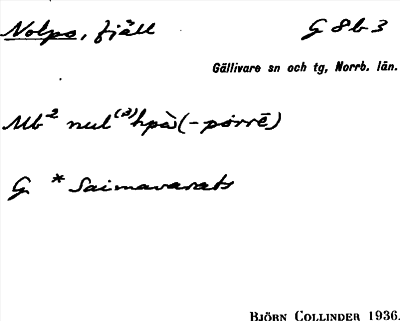 Nolps, fjäll G 8b3
Gällivare sn och tg, Norrb. län.
Mb² nul⁽ᵃ⁾hpà (-pɔrrē)
G * Saimavarats
BJÖRN COLLINDER 1936.